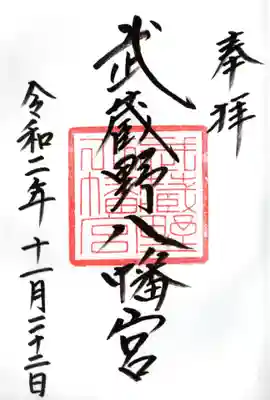 奉拝
武蔵野八幡宮
武蔵野
八幡宮
令和二年十一月二十二日